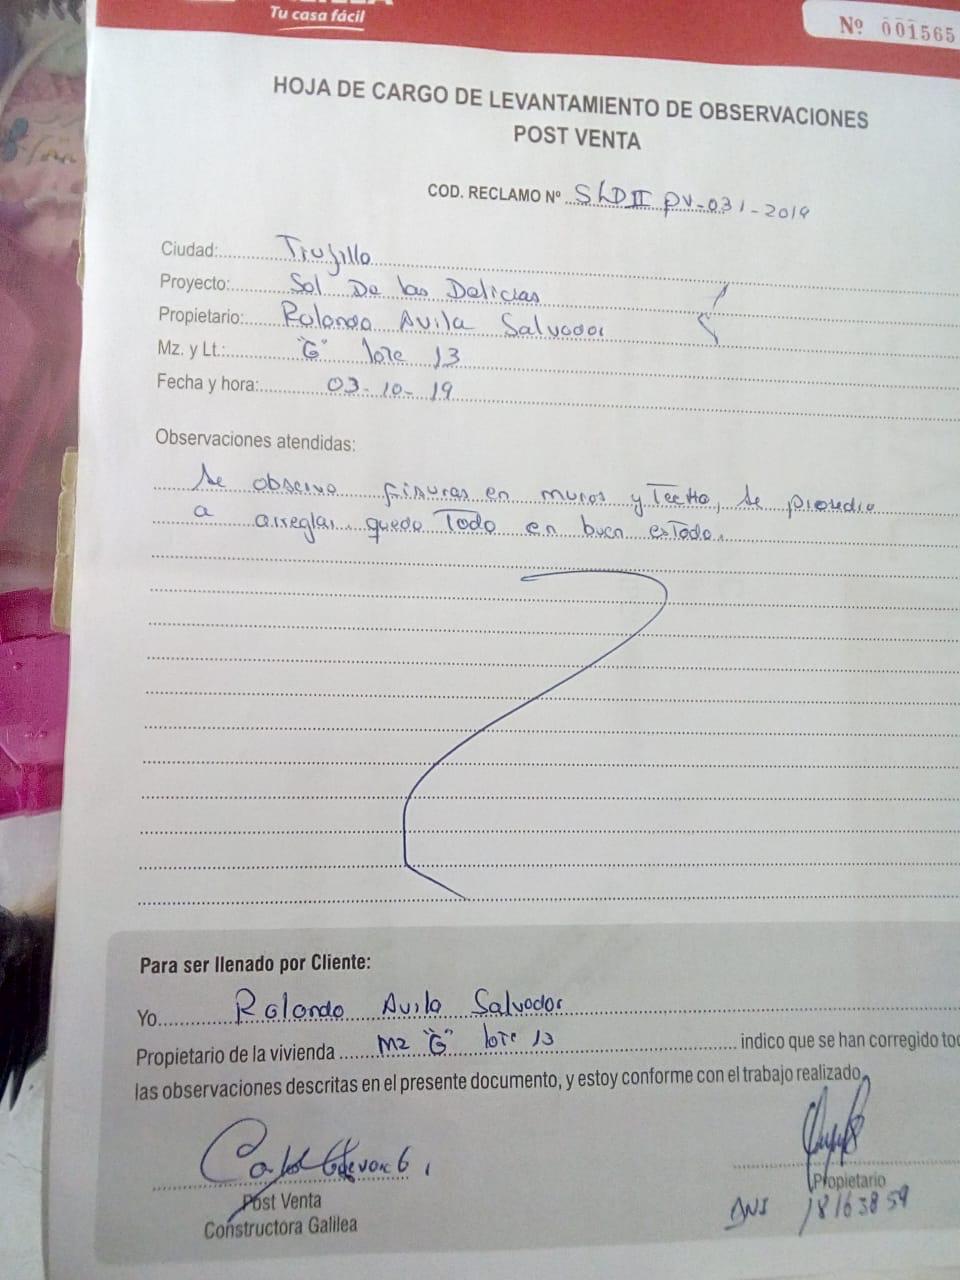 Tu casa fácil
Nº 001565
HOJA DE CARGO DE LEVANTAMIENTO DE OBSERVACIONES
POST VENTA
COD. RECLAMO Nº SLDII PV-031-2019
Ciudad: Trujillo
Proyecto: Sol De las Delicias
Propietario: Rolando Avila Salvador
Mz. y Lt.: "G" lote 13
Fecha y hora: 03-10-19
Observaciones atendidas:
Se observo fisuras en muros y Techo, se procedio
a arreglar quedo Todo en buen estado.
Para ser llenado por Cliente:
Yo Rolando Avila Salvador
Propietario de la vivienda Mz "G" lote 13 indico que se han corregido
las observaciones descritas en el presente documento, y estoy conforme con el trabajo realizado
Post Venta
Constructora Galilea
Propietario
DNI 18163859